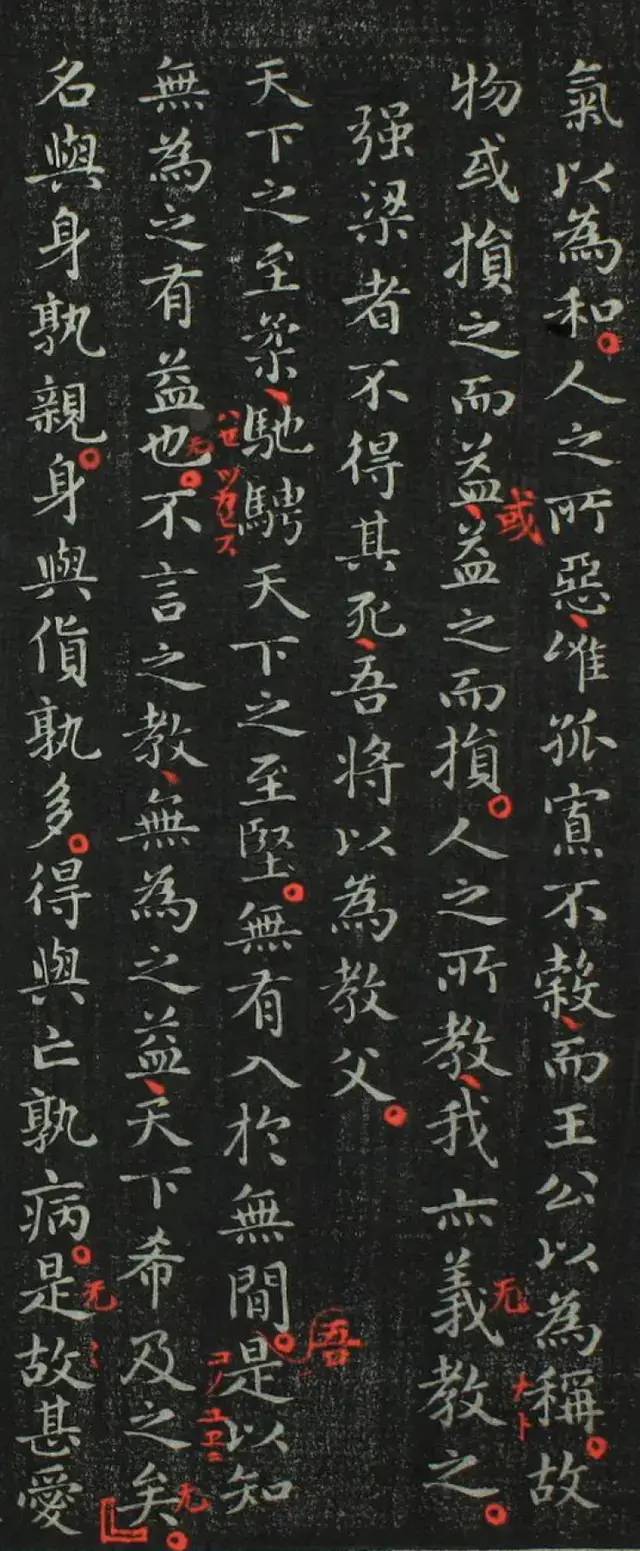 氣以為和人之所惡唯孤寡不穀而王公以為稱故
物或損之而益益之而損人之所教我亦義教之
强梁者不得其死吾將以為教父
天下之至柔馳騁天下之至堅無有入於無間是以知
無為之有益也不言之教無為之益天下希及之矣
名與身孰親身與貨孰多得與亡孰病是故甚愛
或
无
吾
无
无
无